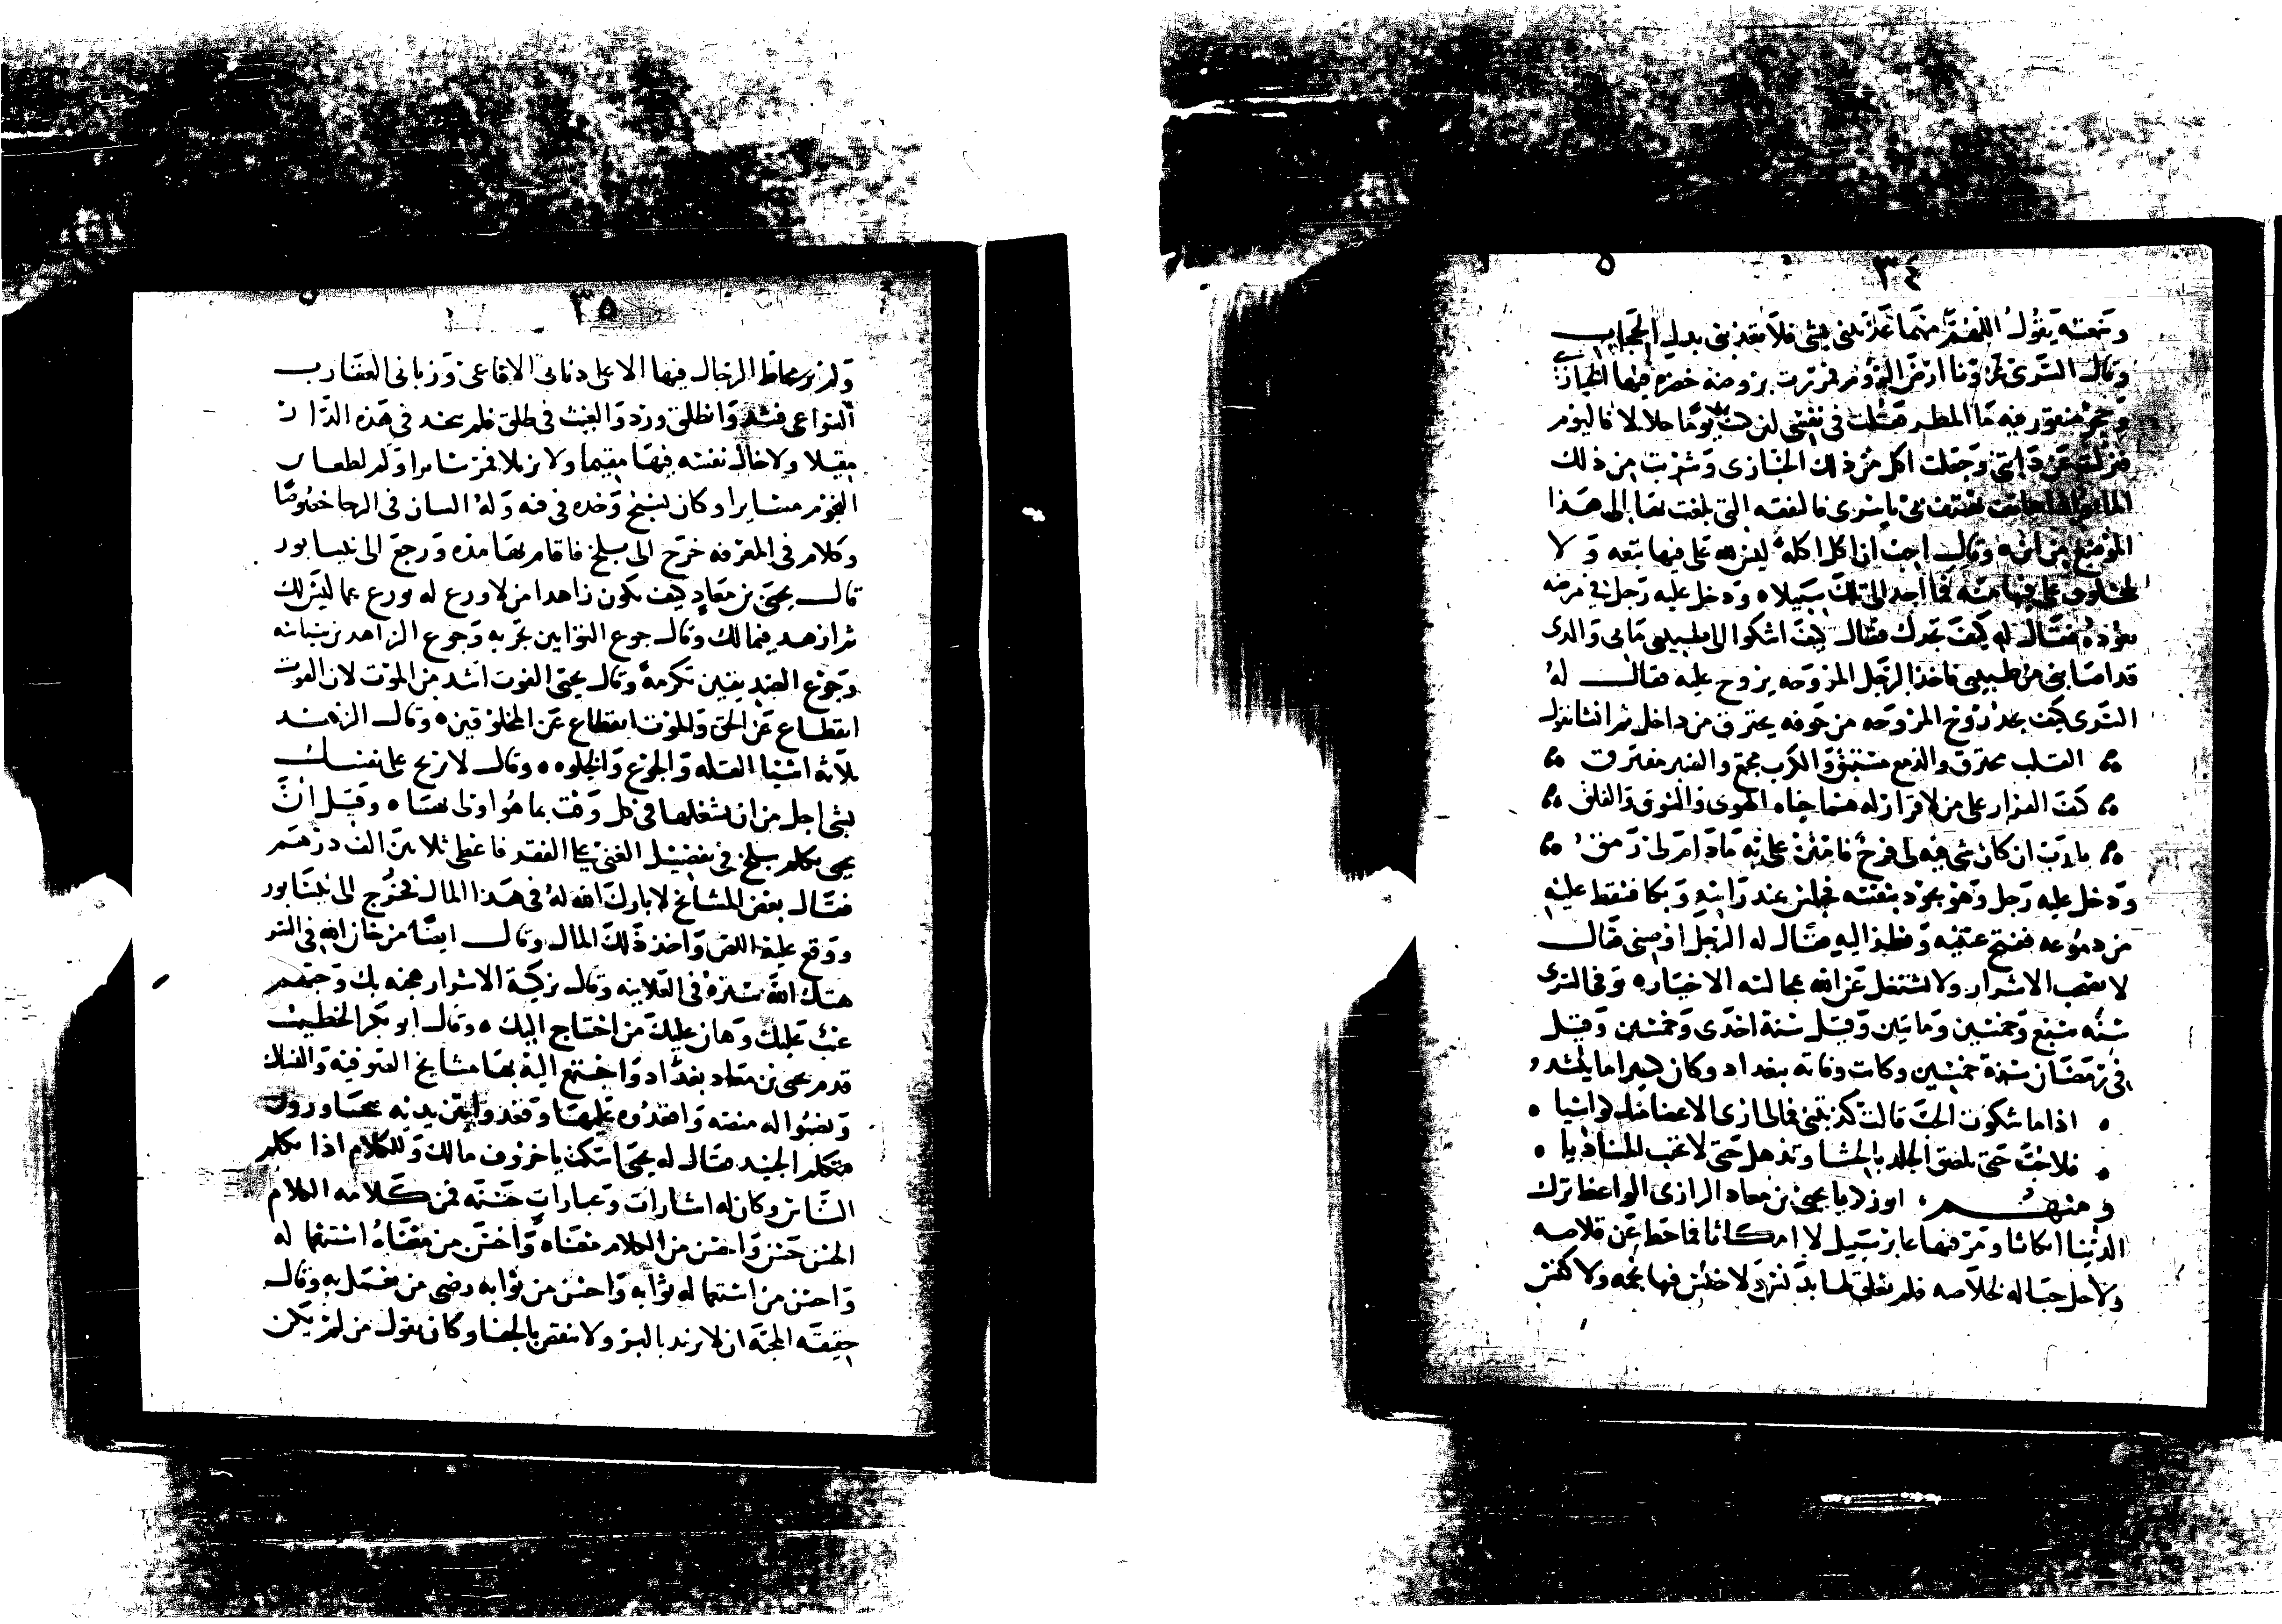 ٣٤
وسمعته يقول اللهم مهما عذبتني بشي فلا تعذبني بذل الحجاب
وقال السري غزونا ارض الروم فمررت بروضة خضره فيها الخبازي
وحجر منقور فيه ما المطر فقلت في نفسي لئن كنت يوما حلالا فاليوم
فنزلت عن دابتي وجعلت اكل من ذلك الخبازى وشربت من ذلك
الما فاذا هاتف يهتف بي يا سري فالنفقه التي بلغت بها الى هذا
الموضع من اين وقال احب ان اكل اكله ليس لله علي فيها تبعه ولا
لمخلوق علي فيها منه فما اجد الى ذلك سبيلا ودخل عليه رجل في مرضه
يعوده فقال له كيف تجدك فقال كيف اشكوا الى طبيبي ما بي والذى
قد اصابني من طبيبي فاخذ الرجل المروحه يروح عليه فقال له
السرى كيف يجد روح المروحه من جوفه يحترق من داخل ثم انشا يقول
القلب محترق والدمع مستبق والكرب مجتمع والصبر مفترق
كيف القرار على من لا قرار له مما جناه الهوى والشوق والقلق
يا رب ان كان شي فيه لي فرج فامنن علي به ما دام لي رمق
ودخل عليه رجل وهو يجود بنفسه فجلس عند راسه وبكا فسقط عليه
من دموعه ففتح عينيه ونظر اليه فقال له الرجل اوصني فقال
لا تصحب الاشرار ولا تشتغل عن الله بمجالسه الاخيار وتوفي السرى
سنه سبع وخمسين ومايتين وقيل سنة احدى وخمسين وقيل
في رمضان سنة خمسين وكانت وفاته ببغداد وكان كثيرا ما ينشد
اذا ما شكوت الحب قالت كذبتني فمالي ارى الاعضا منك كواسيا
فلا حب حتى يلصق الجلد بالحشا وتذهل حتى لا تجيب المناديا
ومنهم ابو زكريا يحيى بن معاد الرازى الواعظ ترك
الدنيا امكانا ومر فيها عابر سبيل لا
ولا حل حباله لخلاصه فلم
٣٥
الا على وزباني العقارب
وانطلق ورد والغيث في طلق فلم يجد في هذه الدار
مقيلا ولا خال نفسه فيها مقيما ولا نزيلا
النجوم مسايرا وكان نسيج وحده في فنه وله لسان في الرجا خصوصا
وكلام في المعرفه خرج الى بلخ فاقام بها مده ورجع الى نيسابور
قال يحيى بن معاد كيف يكون زاهدا من لا ورع له تورع عما ليس لك
ثم ازهد فيما لك وقال جوع التوابين تجربه وجوع الزاهدين سياسه
وجوع الصديقين تكرمه وقال يحيى الفوت اشد من الموت لان الفوت
انقطاع عن الحق والموت انقطاع عن المخلوقين وقال الزهد
ثلاثه اشيا القله والجوع والخلوه وقال لا تربح على نفسك
بشي اجل من ان تشغلها في كل وقت بما هو اولى بها وقيل ان
يحيى تكلم ببلخ في تفضيل الغني على الفقر فاعطي ثلاثين الف درهم
فقال بعض المشايخ لا بارك الله له في هذا المال فخرج الى نيسابور
ووقع عليه اللص واخذ ذلك المال وقال ايضا من خان الله في السر
هتك الله ستره في العلانيه وقال تزكية الاشرار هجنه بك وحبهم
عيب عليك وهان عليك من احتاج اليك وقال ابو بكر الخطيب
قدم يحيى بن معاد بغداد واجتمع اليه بها مشايخ الصوفيه والنساك
ونصبوا له منصه واقعدوه عليها وقعدوا بين يديه يتحاورون
فتكلم الجنيد فقال له يحيى اسكت يا خروف مالك وللكلام اذا تكلم
الناس وكان له اشارات وعبارات حسنه فمن كلامه الكلام
الحسن حسن واحسن من الكلام معناه واحسن من معناه استعماله
واحسن من استعماله ثوابه واحسن من ثوابه رضى من يعمل به وقال
حقيقه المحبه ان لا تزيد بالبر ولا تنقص بالجفا وكان يقول من لم يكن